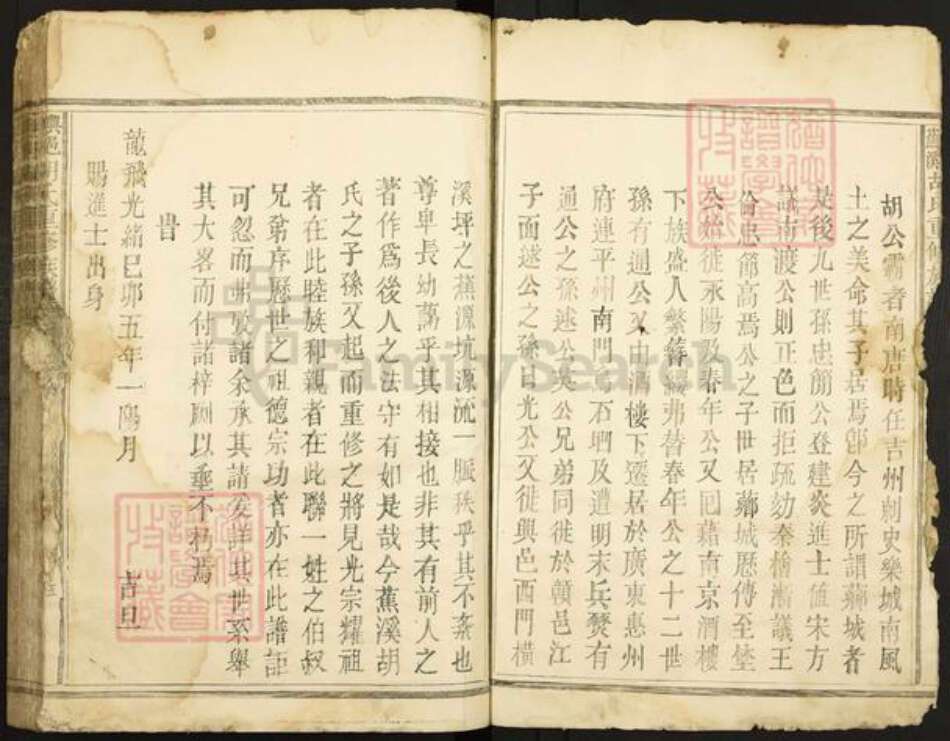 胡公霸者南唐時任吉州刺史樂城南風
土之美命其子居焉即今之所謂薌城者
是後九世孫忠簡公登建炎進士值宋方
議南渡公則正色而拒疏劾秦檜漸議王
倫忠節高焉公之子世居薌城歷傳至
公始徙永陽及春年公又回藉南京酒樓
下族盛人繁簪纓弗替春年公之十二世
孫有通公又由酒樓下遷居於廣東惠州
府連平州南門 石 及遭明末兵燹有
通公之孫述公英公兄弟同徙於贛邑江
子面述公之孫日光公又徙興邑西門橫
溪坪之蕉源坑源流一脈秩乎其不紊也
尊卑長幼藹乎其相接也非其有前人之
著作爲後人之法守有如是哉今蕉溪胡
氏之子孫又起而重修之將見光宗耀祖
者在此睦族和親者在此聯一姓之伯叔
兄弟序歷世之祖德宗功者亦在此譜詎
可忽而弗攷諸余承其請爰詳其世系舉
其大畧而付諸梓劂以垂不朽焉
旹
龍飛光緒巳卯五年一陽月 吉旦
賜進士出身
胡氏重修族
譜學會
收藏
FamilySearch
譜學會
收藏